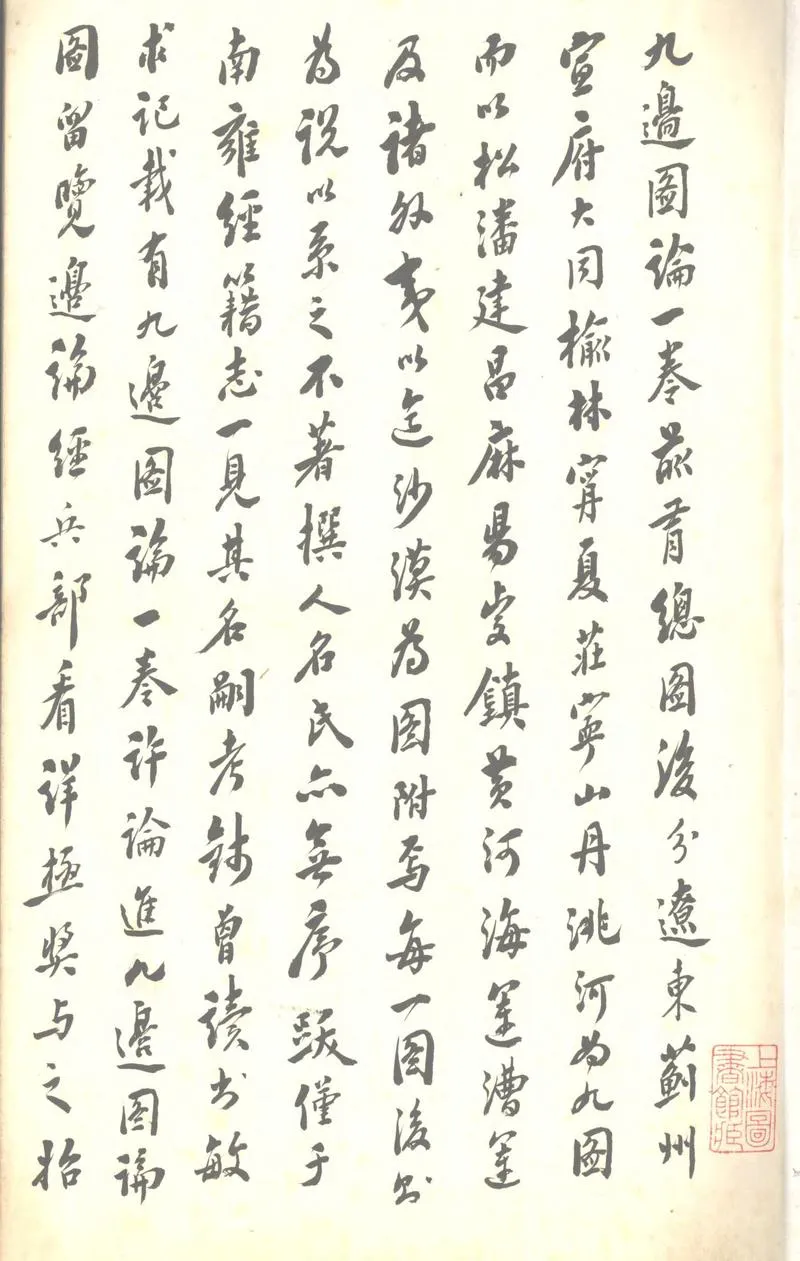 九邊圖論一卷前有總圖後分遼東薊州
宣府大同榆林寧夏莊寧山丹洮河為九圖
而以松潘建昌麻陽虔鎮黃河海運漕運
及諸外夷以迄沙漠為圖附焉每一圖後則
為說以系之不著撰人名氏亦無序跋僅于
南雍經籍志一見其名嗣考錢曾讀書敏
求記載有九邊圖論一卷許論進九邊圖論
圖留覽邊論經兵部看詳極獎與之招
上海圖
書館所